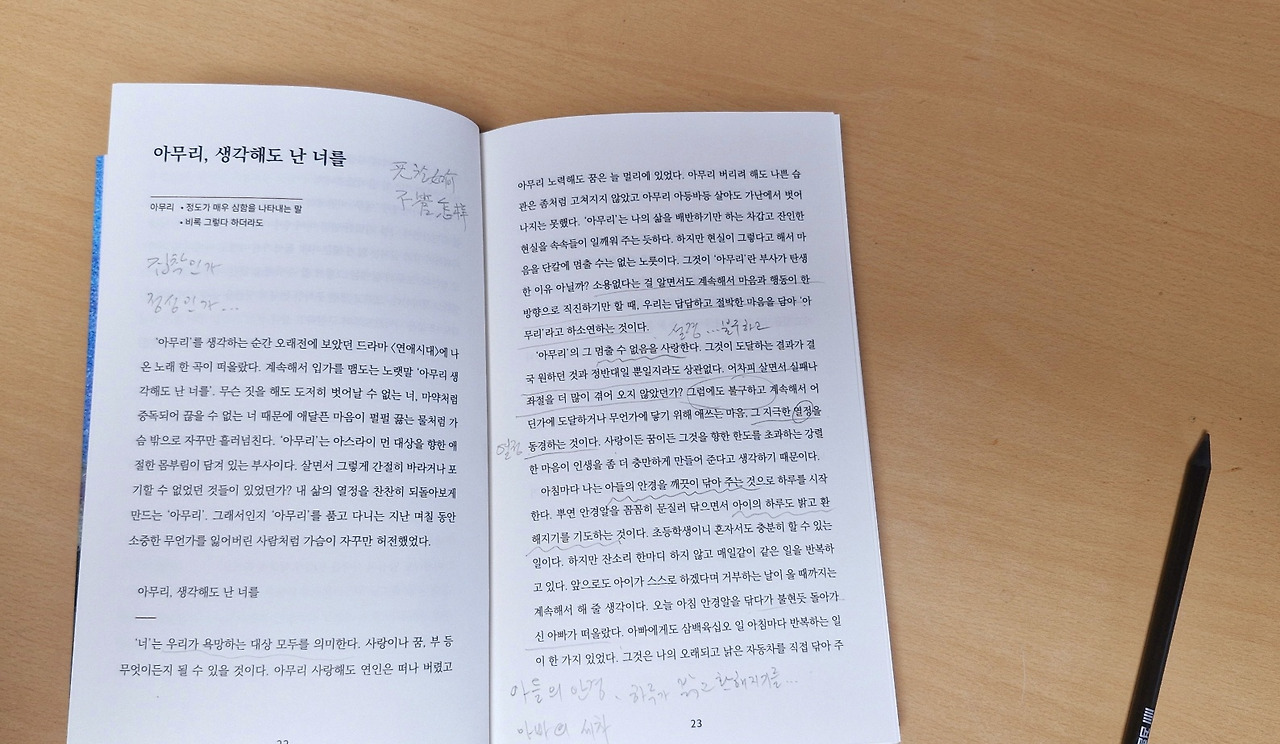 아무리, 생각해도 난 너를
아무리 • 정도가 매우 심함을 나타내는 말
• 비록 그렇다 하더라도
不管怎样
집착인가
정성인가...
'아무리'를 생각하는 순간 오래전에 보았던 드라마 〈연애시대〉에 나
온 노래 한 곡이 떠올랐다. 계속해서 입가를 맴도는 노랫말 '아무리 생
각해도 난 너를'. 무슨 짓을 해도 도저히 벗어날 수 없는 너, 마약처럼
중독되어 끊을 수 없는 너 때문에 애달픈 마음이 펄펄 끓는 물처럼 가
슴 밖으로 자꾸만 흘러넘친다. '아무리'는 아스라이 먼 대상을 향한 애
절한 몸부림이 담겨 있는 부사이다. 살면서 그렇게 간절히 바라거나 포
기할 수 없었던 것들이 있었던가? 내 삶의 열정을 찬찬히 되돌아보게
만드는 '아무리'. 그래서인지 '아무리'를 품고 다니는 지난 며칠 동안
소중한 무언가를 잃어버린 사람처럼 가슴이 자꾸만 허전했었다.
아무리, 생각해도 난 너를
'너'는 우리가 욕망하는 대상 모두를 의미한다. 사랑이나 꿈, 부 등
무엇이든지 될 수 있을 것이다. 아무리 사랑해도 연인은 떠나 버렸고
22
아무리 노력해도 꿈은 늘 멀리에 있었다. 아무리 버리려 해도 나쁜 습
관은 좀처럼 고쳐지지 않았고 아무리 아등바등 살아도 가난에서 벗어
나지는 못했다. '아무리'는 나의 삶을 배반하기만 하는 차갑고 잔인한
현실을 속속들이 일깨워 주는 듯하다. 하지만 현실이 그렇다고 해서 마
음을 단칼에 멈출 수는 없는 노릇이다. 그것이 '아무리'란 부사가 탄생
한 이유 아닐까? 소용없다는 걸 알면서도 계속해서 마음과 행동이 한
방향으로 직진하기만 할 때, 우리는 답답하고 절박한 마음을 담아 '아
무리'라고 하소연하는 것이다.
...불구하고
'아무리'의 그 멈출 수 없음을 사랑한다. 그것이 도달하는 결과가 결
국 원하던 것과 정반대일 뿐일지라도 상관없다. 어차피 살면서 실패나
좌절을 더 많이 겪어 오지 않았던가? 그럼에도 불구하고 계속해서 어
딘가에 도달하거나 무언가에 닿기 위해 애쓰는 마음, 그 지극한 열정을
열정
동경하는 것이다. 사랑이든 꿈이든 그것을 향한 한도를 초과하는 강렬
한 마음이 인생을 좀 더 충만하게 만들어 준다고 생각하기 때문이다.
아침마다 나는 아들의 안경을 깨끗이 닦아 주는 것으로 하루를 시작
한다. 뿌연 안경알을 꼼꼼히 문질러 닦으면서 아이의 하루도 밝고 환
해지기를 기도하는 것이다. 초등학생이니 혼자서도 충분히 할 수 있는
일이다. 하지만 잔소리 한마디 하지 않고 매일같이 같은 일을 반복하
고 있다. 앞으로도 아이가 스스로 하겠다며 거부하는 날이 올 때까지는
계속해서 해 줄 생각이다. 오늘 아침 안경알을 닦다가 불현듯 돌아가
신 아빠가 떠올랐다. 아빠에게도 삼백육십오 일 아침마다 반복하는 일
이 한 가지 있었다. 그것은 나의 오래되고 낡은 자동차를 직접 닦아 주
아들의 안경, 하루가 밝고 환해지기를...
아빠의 세차
23